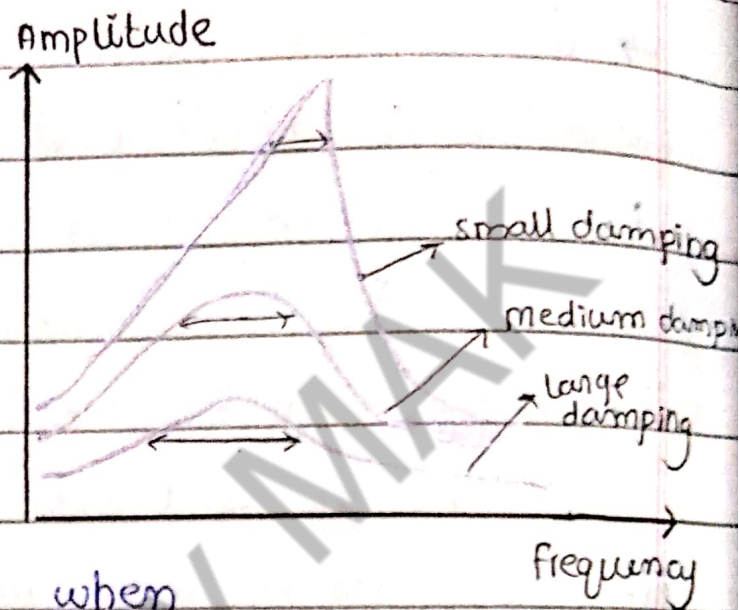 Amplitude
small damping
medium
large
damping
frequency
when
MAK